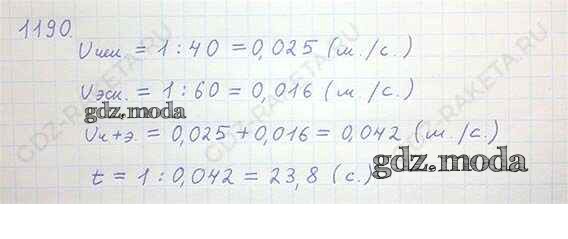 1190.
Vчел. = 1 : 40 = 0,025 (м./с.)
Vэск. = 1 : 60 = 0,016 (м./с.)
gdz.moda
Vч+э. = 0,025 + 0,016 = 0,042 (м./с.)
gdz.moda
t = 1 : 0,042 = 23,8 (с.)
GDZ-RAKETA.RU
GDZ-RAKETA.RU